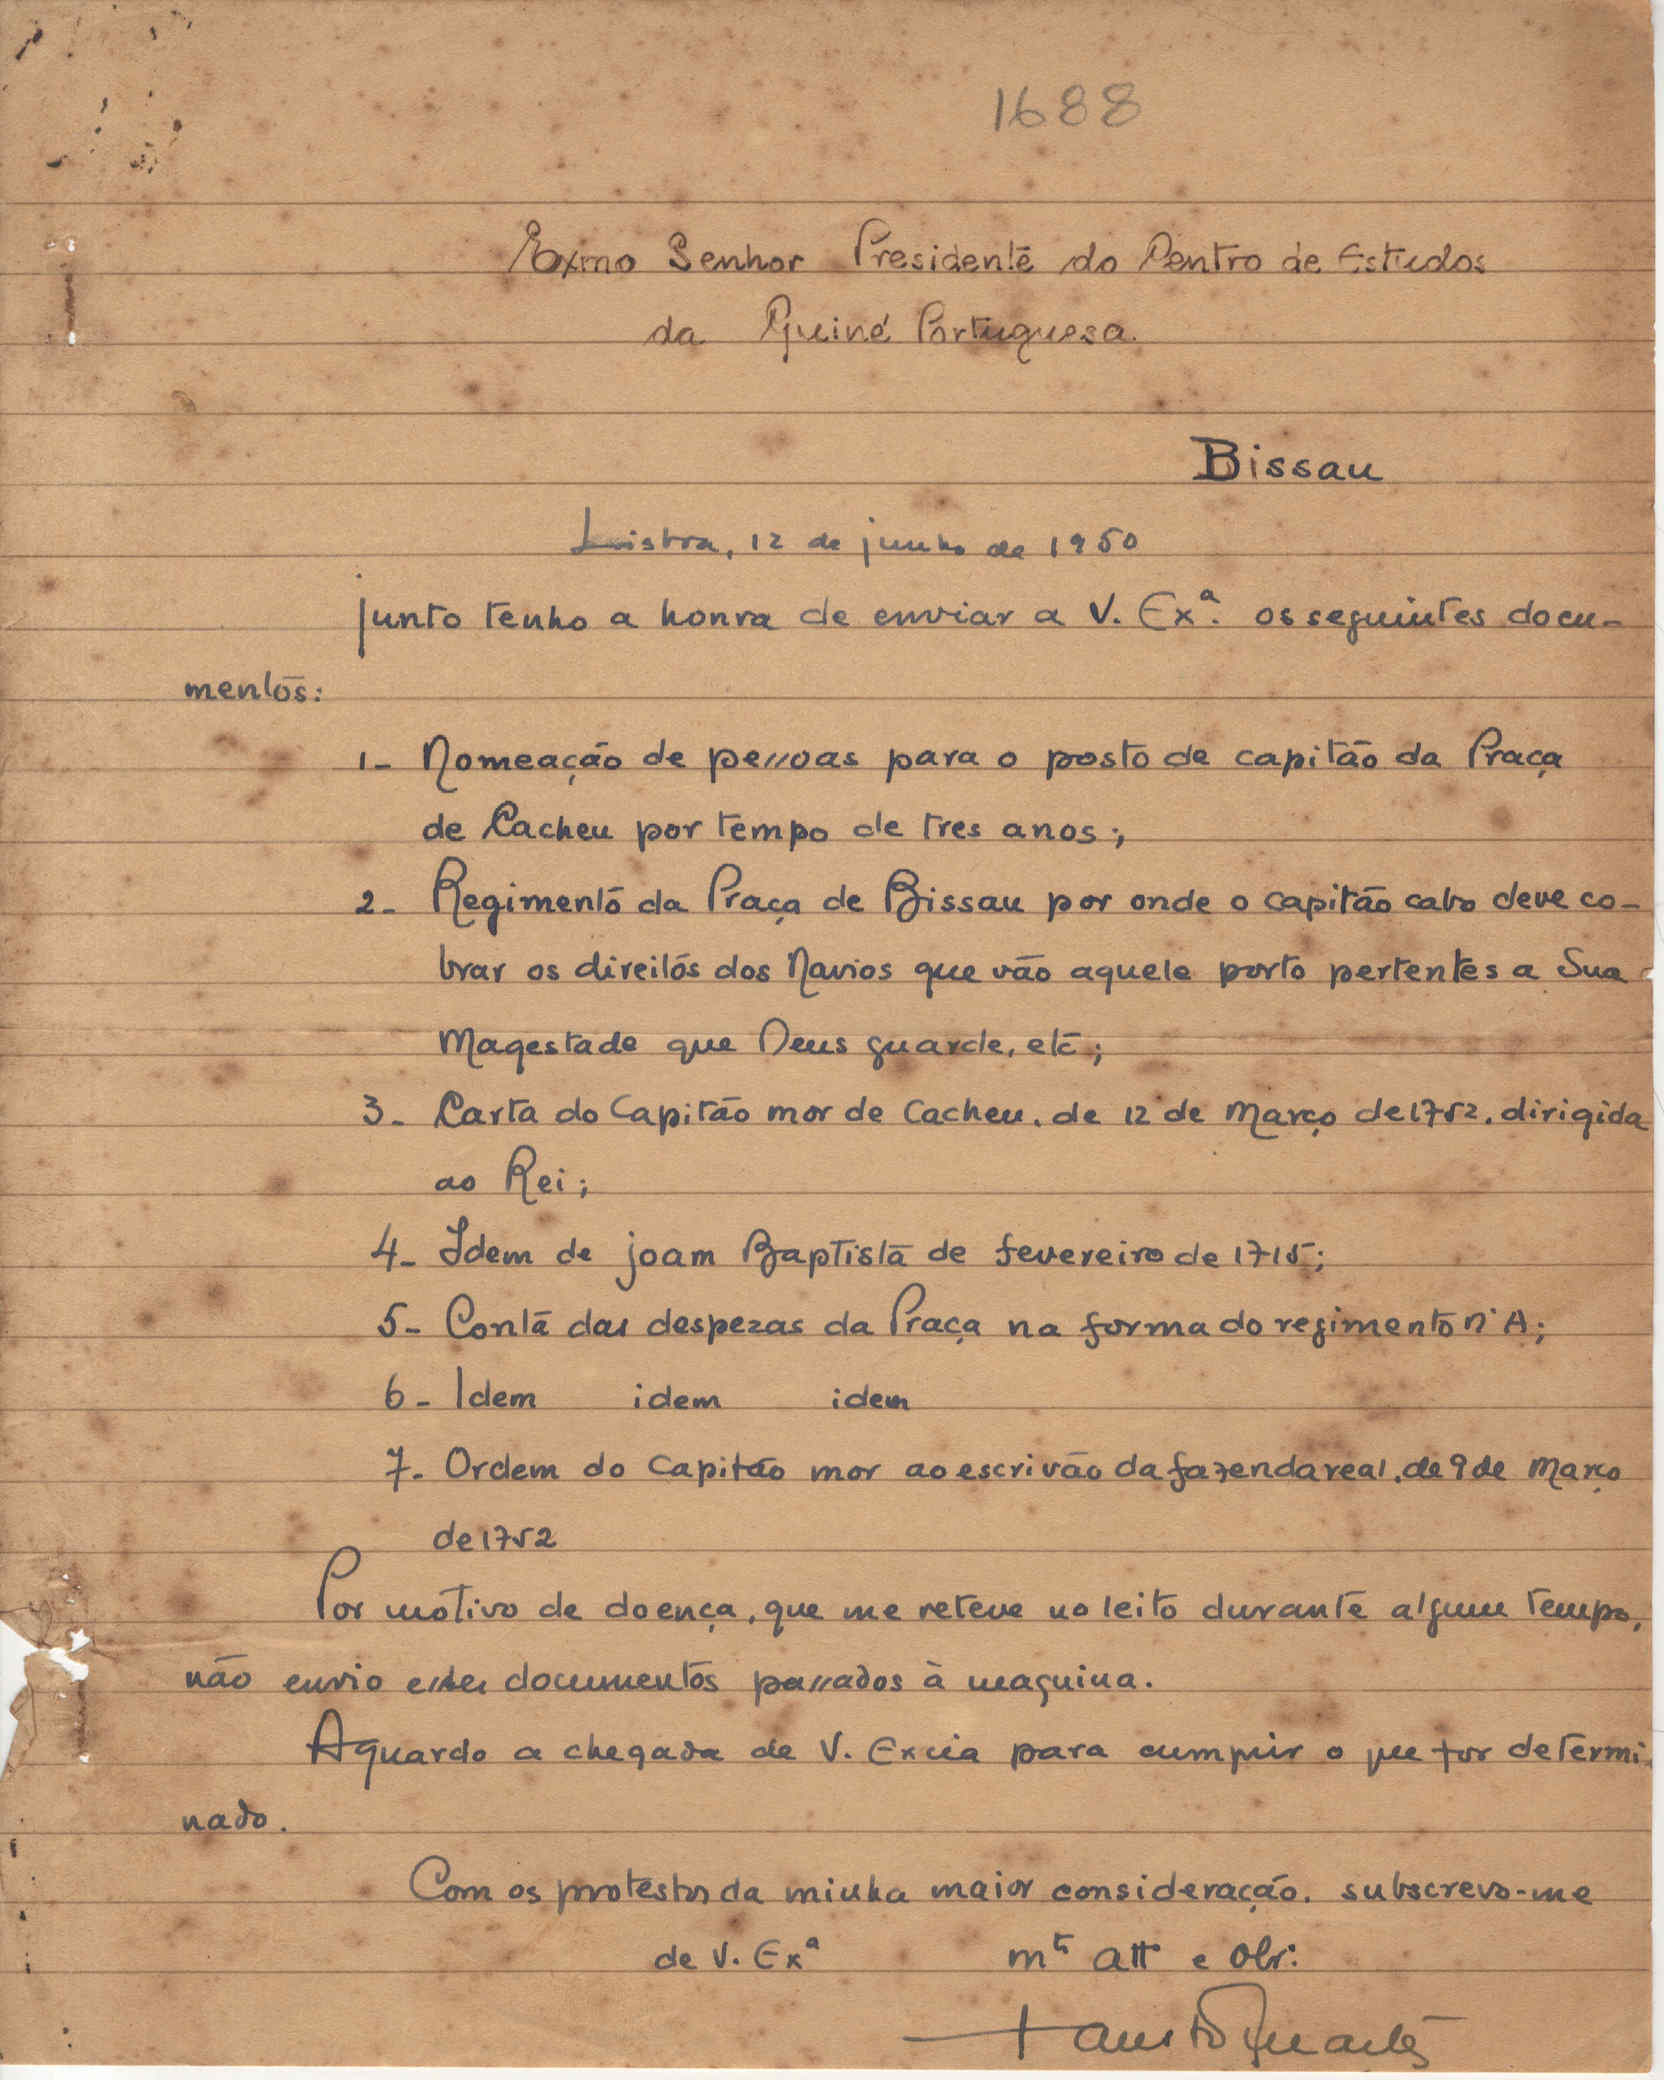 1688
Exmo Senhor Presidente do Centro de Estudos
da Guiné Portuguesa.
Bissau
Lisboa, 12 de junho de 1950
Junto tenho a honra de enviar a V. Exª. os seguintes docu-
mentos:
1- Nomeação de pessoas para o posto de capitão da Praça
de Cacheu por tempo de tres anos;
2- Regimento da Praça de Bissau por onde o capitão cabo deve co-
brar os direitos dos Navios que vão aquele porto pertentes a Sua
Magestade que Deus guarde, etc;
3- Carta do Capitão mor de Cacheu, de 12 de Março de 1752, dirigida
ao Rei;
4- Idem de Joam Baptista de fevereiro de 1715;
5- Conta das despezas da Praça na forma do regimento nº A;
6- Idem idem idem
7- Ordem do Capitão mor ao escrivão da fazenda real, de 9 de Março
de 1752
Por motivo de doença, que me reteve no leito durante algum tempo,
não envio estes documentos passados à maquina.
Aguardo a chegada de V. Excia para cumprir o que for determi-
nado.
Com os protestos da minha maior consideração, subscrevo-me
de V. Exª mtº attº e Obrº:
Fausto Duarte